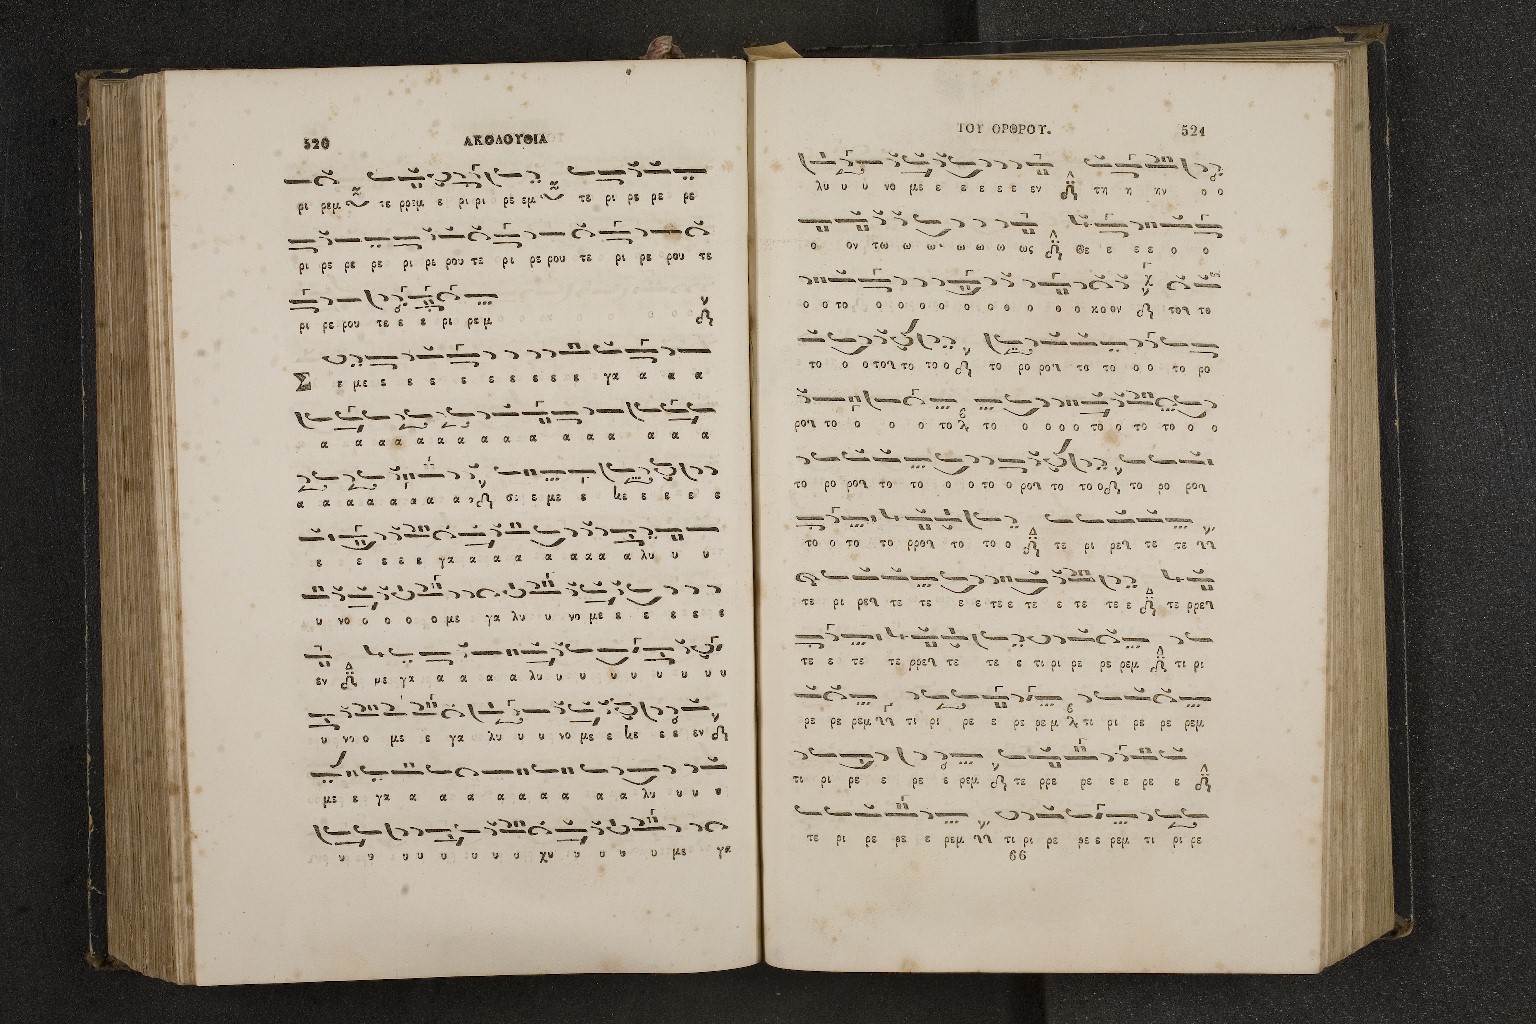 520 ΑΚΟΛΟΥΘΙΑ
ρι ρεμ τε ρρεμ ε ρι ρι ρε εμ τε ρι ρε ρε ρε
ρι ρε ρε ρε ρι ρε ρου τε ρι ρε ρου τε ρι ρε ρου τε
ρι ρε ρου τε ε ε ρι ρεμ
Σ ε με ε ε ε ε ε ε ε ε ε γα α α α
α α α α α α α α α α α α α α α α
α α α α α α α α σε ε με ε κε ε ε ε ε
ε ε ε ε ε γα α α α α α α α λυ υ υ
υ νο ο ο ο ο με γα λυ υ νο με ε ε ε ε
εν με γα α α α α λυ υ υ υ υ υ υ υ υ
υ νο ο με ε γα λυ υ υ νο με ε κε ε ε εν
με ε γα α α α α α α α α λυ υ υ υ
υ υ υ υ υ υ υ χυ υ υ υ υ με γα
ΤΟΥ ΟΡΘΡΟΥ. 521
λυ υ υ νο με ε ε ε ε ε εν τη η ην ο ο
ο ον τω ω ω ω ω ω ως θε ε ε ε ο ο
ο ο το ο ο ο ο ο ο ο ο ο ο κοον τοτ το
το ο ο τοτ το το ο το ρο ροτ το το ο ο το ρο
ροτ το ο ο ο το το ο ο ο ο το ο το το ο ο
το ρο ροτ το το ο ο το ο ροτ το το ο το ρο ροτ
το ο το το ρροτ το το ο τε ρι ρετ τε τε
τε ρι ρετ τε τε ε ε τε ε τε ε τε τε ε τε ρρετ
τε ε τε τε ρρετ τε τε ε τι ρι ρε ρε ρεμ τι ρι
ρε ρε ρεμ τι ρι ρε ε ρε ρε μ τι ρι ρε ρε ρεμ
τι ρι ρε ε ρε ε ρεμ τε ρρε ρε ε ε ρε ε
τε ρι ρε ρε ε ρεμ τι ρι ρε ρε ε ρεμ τι ρι ρε
66